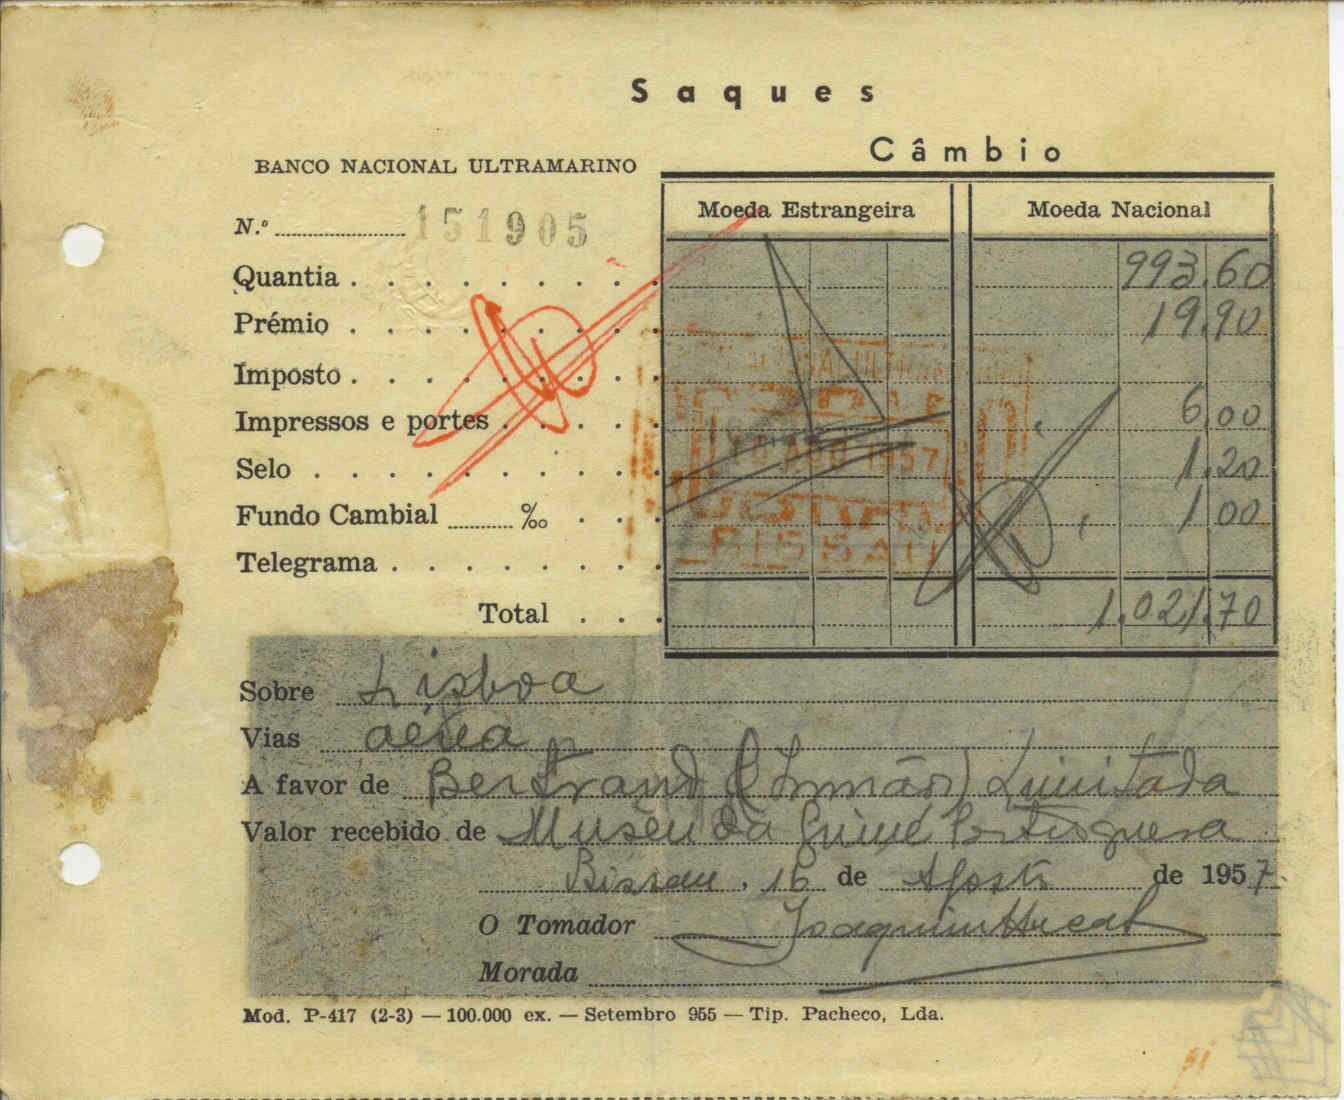 Saques
Câmbio
BANCO NACIONAL ULTRAMARINO
Moeda Estrangeira Moeda Nacional
N.º 151905
Quantia 993,60
Prémio 19,90
Imposto
Impressos e portes 6,00
Selo 1,20
Fundo Cambial ‰ 1,00
Telegrama
Total 1.021,70
18 AGO 1957
BISSAU
Sobre Lisboa
Vias aérea
A favor de Bertrand (Irmãos) Limitada
Valor recebido de Museu da Guiné Portuguesa
Bissau, 16 de Agosto de 1957.
O Tomador
Morada
Mod. P-417 (2-3) — 100.000 ex. — Setembro 955 — Tip. Pacheco, Lda.